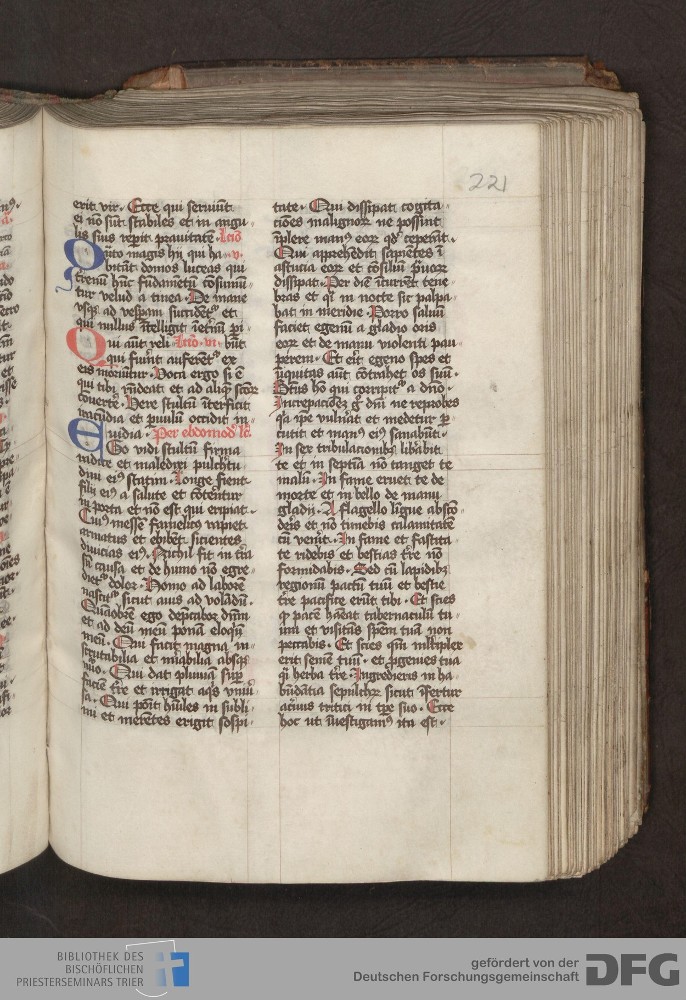 221
erit vir. Ecce qui seruiūt
ei nō sūt stabiles et in angu
lis suis rep̄it prauitatē Lcio
Quāto magis hij qui ha v.
bitāt domos luteas qui
t̄renū hn̄t fūdamētū cōsumū
tur velud a tinea. De mane
vsqꝫ ad vesp̄am succidētᷣ et
qui nullus ītelligit īet̄nū pi
Qui aūt reli Lcio. vi. būt
qui fūīnt auferētᷣ ex
eis moriūtur. Voca ergo si ē
qui tibi rn̄deat et ad aliqē sctōr
cōuerte. Vere stultū īterficit
iracūdia et ꝑuulū occidit in
uidia. Per ebdomodā lc̄.
Ego vidi stultū firma
radice et maledixi pulchͥtu
dini eiꝰ statim. Longe fient
filij eiꝰ a salute et cōterētur
in porta et nō est qui eripiat.
Cuiꝰ messē famelicꝰ rapiet
armatus et ebibēt sicientes
diuicias eiꝰ. Nichil fit in t̄ra
sn̄ causa et de humo nō egre
dietᷣ dolor. Homo ad laborē
nascitᷣ sicut auis ad volādū.
Quāobrē ego dep̄cabor dn̄m
et ad deū meū ponā eloqiū
meū. Qui facit magna in
scrutabilia et mirabilia absqꝫ
nūo. Qui dat pluuiā suꝑ
faciē t̄re et irrigat aqͥs vniū
sa. Qui poīt hūiles in subli
mi et merētes erigit sospi
tate. Qui dissipat cogita
ciōes malignoꝝ ne possint
īplere manꝰ eoꝝ qd ceperāt.
Qui apprehēdit sapiētes ī
astucia eoꝝ et cōsiliū ꝑuoꝝ
dissipat. Per diē īcurrēt tene
bras et qͣi in nocte sic palpa
bāt in meridie. Porro saluū
faciet egenū a gladio oris
eoꝝ et de manu violenti pau
perem. Et erit egeno spes et
īiquitas aūt cōtrahet os suū.
Btūs hō qui corripitᷣ a dn̄o.
Increpacioēꝫ gͦ dn̄i ne reprobes
qͥa ip̄e vulnāt et medetur ꝑ
cutit et manꝰ eiꝰ sanabūt.
In sex tribulacionibꝫ libābit
te et in septīa nō tanget te
malū. In fame eruet te de
morte et in bello de manu
gladij. A flagello līgue absco
deris et nō timebis calamitatē
cū venīt. In fame et fastita
te ridebis et bestias t̄re nō
formidabis. Sed cū lapidibꝫ
regionū pactū tuū et bestie
t̄re pacifice erūt tibi. Et scies
qꝫ pacē hab̄eat tabernaculū tu
um et visitās spēm tuā non
peccabis. Et scies qm̄ multiplex
erit semē tuū. et ꝓgenies tua
qͣi herba t̄re. Ingredieris in ha
būdātia sepulchꝝ sicut īfertur
aceruus tritici in tꝑe suo. Ecce
hoc ut īuestigamꝰ ita est.
BIBLIOTHEK DES
BISCHÖFLICHEN
PRIESTERSEMINARS TRIER
gefördert von der
Deutschen Forschungsgemeinschaft
DFG